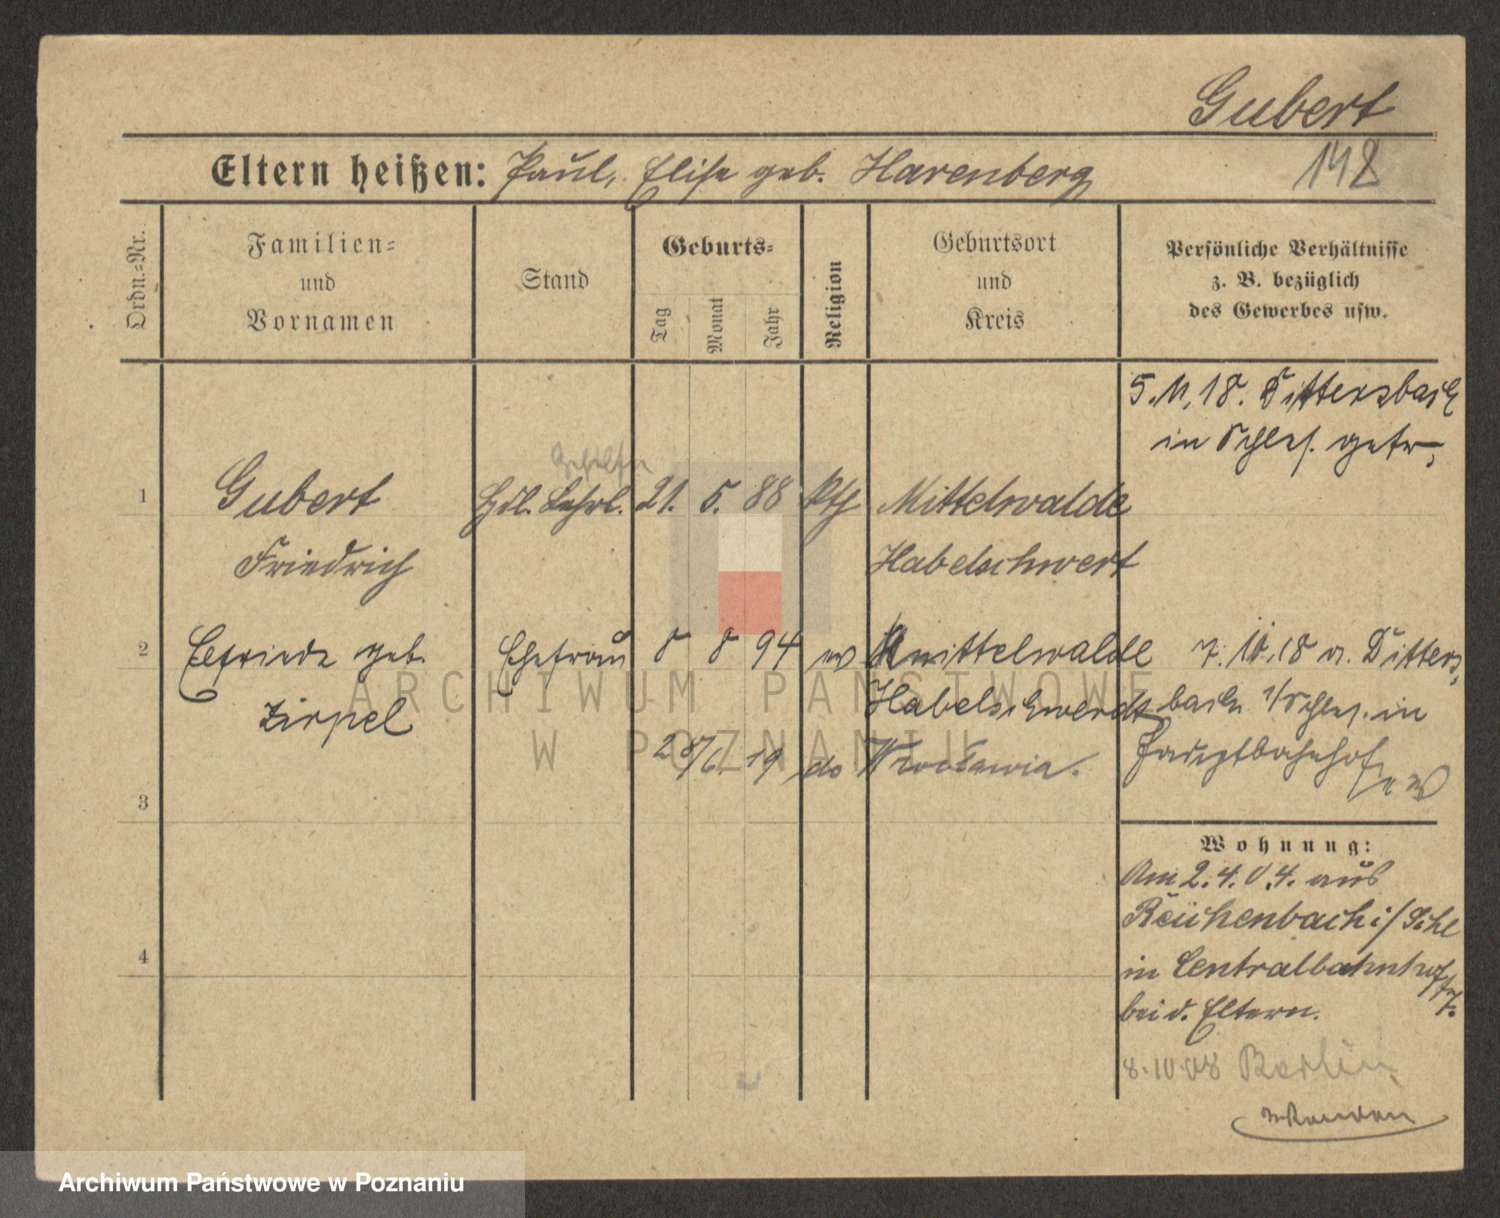 Gubert
Eltern heißen: Paul, Elise geb. Harenberg
142
Ordn.-Nr.
Familien-
und
Vornamen
Stand
Geburts-
Tag
Monat
Jahr
Religion
Geburtsort
und
Kreis
Persönliche Verhältnisse
z. B. bezüglich
des Gewerbes usw.
5. 11. 18. Dittersbach
in Schles. getr.
Gehilfe
1 Gubert Hdl. Lehrl. 21. 5. 88 kth Mittelwalde
Friedrich Habelschwert
2 Elfriede geb. Ehefrau 8 8 94 ev Mittelwalde 7. 10. 18 v. Ditters
Zirpel Habelschwerdt bach i/Schles. in
28/6. 19 do Wrocławia. Hauptbahnhof
3
Wohnung:
Am 2. 4. 04. aus
Reichenbach i/Schl
in Centralbahnhof
bei d. Eltern.
4
8.10.08 Berlin
ARCHIWUM PAŃSTWOWE
W POZNANIU
Archiwum Państwowe w Poznaniu